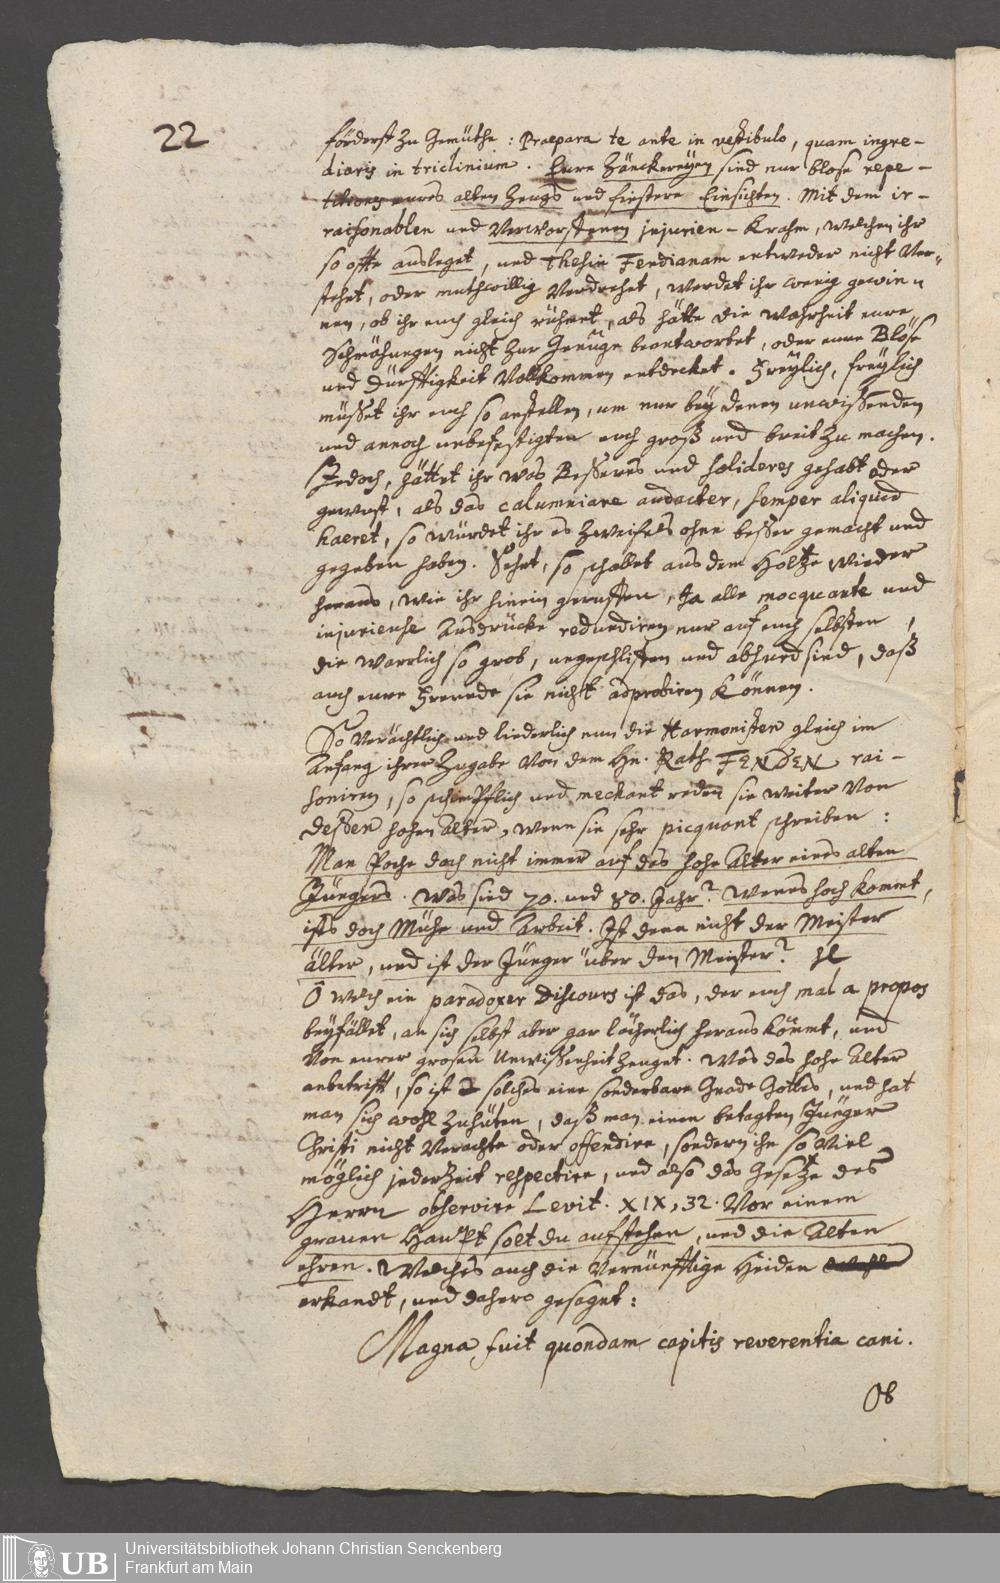 22
förderst zu Gemüthe: Praepara te ante in vestibulo, quam ingre-
diaris in triclinium. Eure Zänckereyen sind nur blose repe-
titiones eures alten Zeugs und finstere Einsichten. Mit dem ir-
raisonablen und Verworffenen injurien-Krahm, welchen ihr
so offte ausleget, und Thesin Fendianam entweder nicht Ver-
stehet, oder muthwillig Verdrehet, werdet ihr wenig gewin-
nen, ob ihr euch gleich rühmet, als hätte die Wahrheit eure
Schmähungen nicht zur Genüge beantwortet, oder eure Blöse
und Dürfftigkeit Vollkommen entdecket. Freylich, freylich
müsset ihr euch so anstellen, um nur bey denen unwissenden
und annoch unbefestigten euch groß und breit zu machen.
Jedoch, hättet ihr was Besseres und solideres gehabt oder
gewust, als das calumniare audacter, semper aliquid
haeret, so würdet ihr es Zweifels ohne besser gemacht und
gegeben haben. Sehet, so schallet aus dem Holtze wieder
heraus, wie ihr hinein geruffen, Ja alle mocquante und
injurieuse Ausdrücke redundiren nur auf euch selbsten,
die warrlich so grob, ungeschliffen und absurd sind, daß
auch eure Freunde sie nicht approbiren können.
So verächtlich und liederlich nun die Harmonisten gleich im
Anfang ihrer Zugabe Von dem Hn. Rath FENDEN rai-
soniren, so schimpflich und mechant reden sie weiter Von
dessen hohen Alter, wenn sie sehr picquant schreiben:
Man Poche doch nicht immer auf das hohe Alter eines alten
Jüngers. Was sind 70. und 80. Jahr? Wenns hoch kommt,
ists doch Mühe und Arbeit. Ist denn nicht der Meister
älter, und ist der Jünger über den Meister?
O welch ein paradoxer Discours ist das, der euch mal a propos
beyfället, an sich selbst aber gar lächerlich heraus kömmt, und
Von eurer grosen Unwissenheit zeuget. Was das hohe Alter
anbetrifft, so ist solches eine sonderbare Gnade Gottes, und hat
man sich wohl zu hüten, daß man einen betagten Jünger
Christi nicht Verachte oder offendire, sondern ihn so Viel
möglich jederzeit respectire, und also das Gesetze des
Herrn observire Levit. XIX, 32. Vor einem
grauen Haupt solt du aufstehen, und die Alten
ehren. Welches auch die Vernünfftige Heiden
erkandt, und dahero gesaget:
Magna fuit quondam capitis reverentia cani.
Ob
UB Universitätsbibliothek Johann Christian Senckenberg
Frankfurt am Main